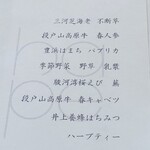 三河芝海老 不断草
段戸山高原牛 春人参
豊浜はまち パプリカ
季節野菜 野草 乳清
駿河湾桜えび 蕗
段戸山高原牛 春キャベツ
井上養蜂はちみつ
ハーブティー